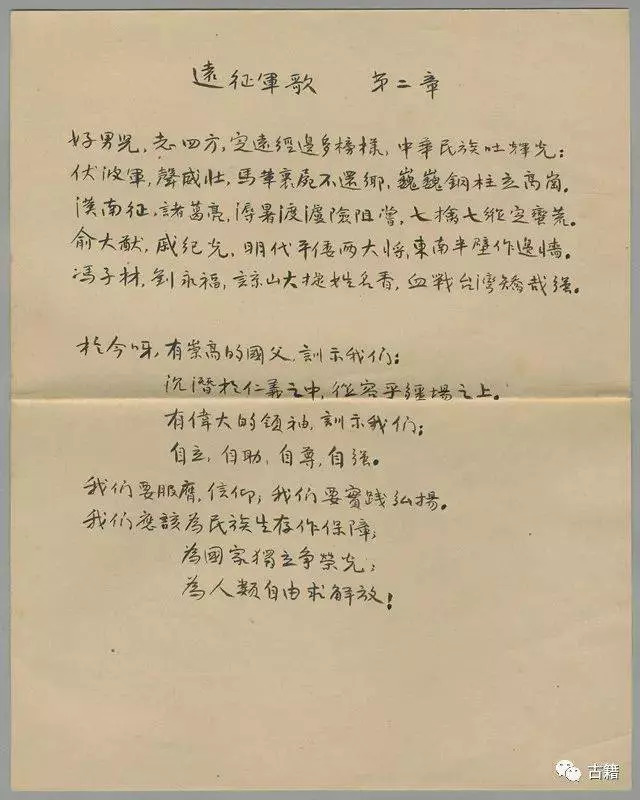 遠征軍歌 第二章
好男兒,志四方,定遠經邊多榜樣,中華民族吐輝光;
伏波軍,聲威壯,馬革裹屍不還鄉,巍巍銅柱立高崗。
漢南征,諸葛亮,溽暑渡瀘險阻嘗,七擒七縱定蠻荒。
俞大猷,戚纪光,明代平倭两大将,東南半壁作邊牆。
冯子材,劉永福,諒山大捷姓名香,血戰台灣矯哉强。
於今呀,有崇高的國父,訓示我们:
沉潛於仁義之中,從容乎疆場之上。
有偉大的领袖,訓示我们:
自立,自助,自尊,自强。
我们要服膺,信仰;我们要實践弘揚。
我们應該為民族生存作保障;
為國家獨立争榮光;
為人類自由求解放!
古籍